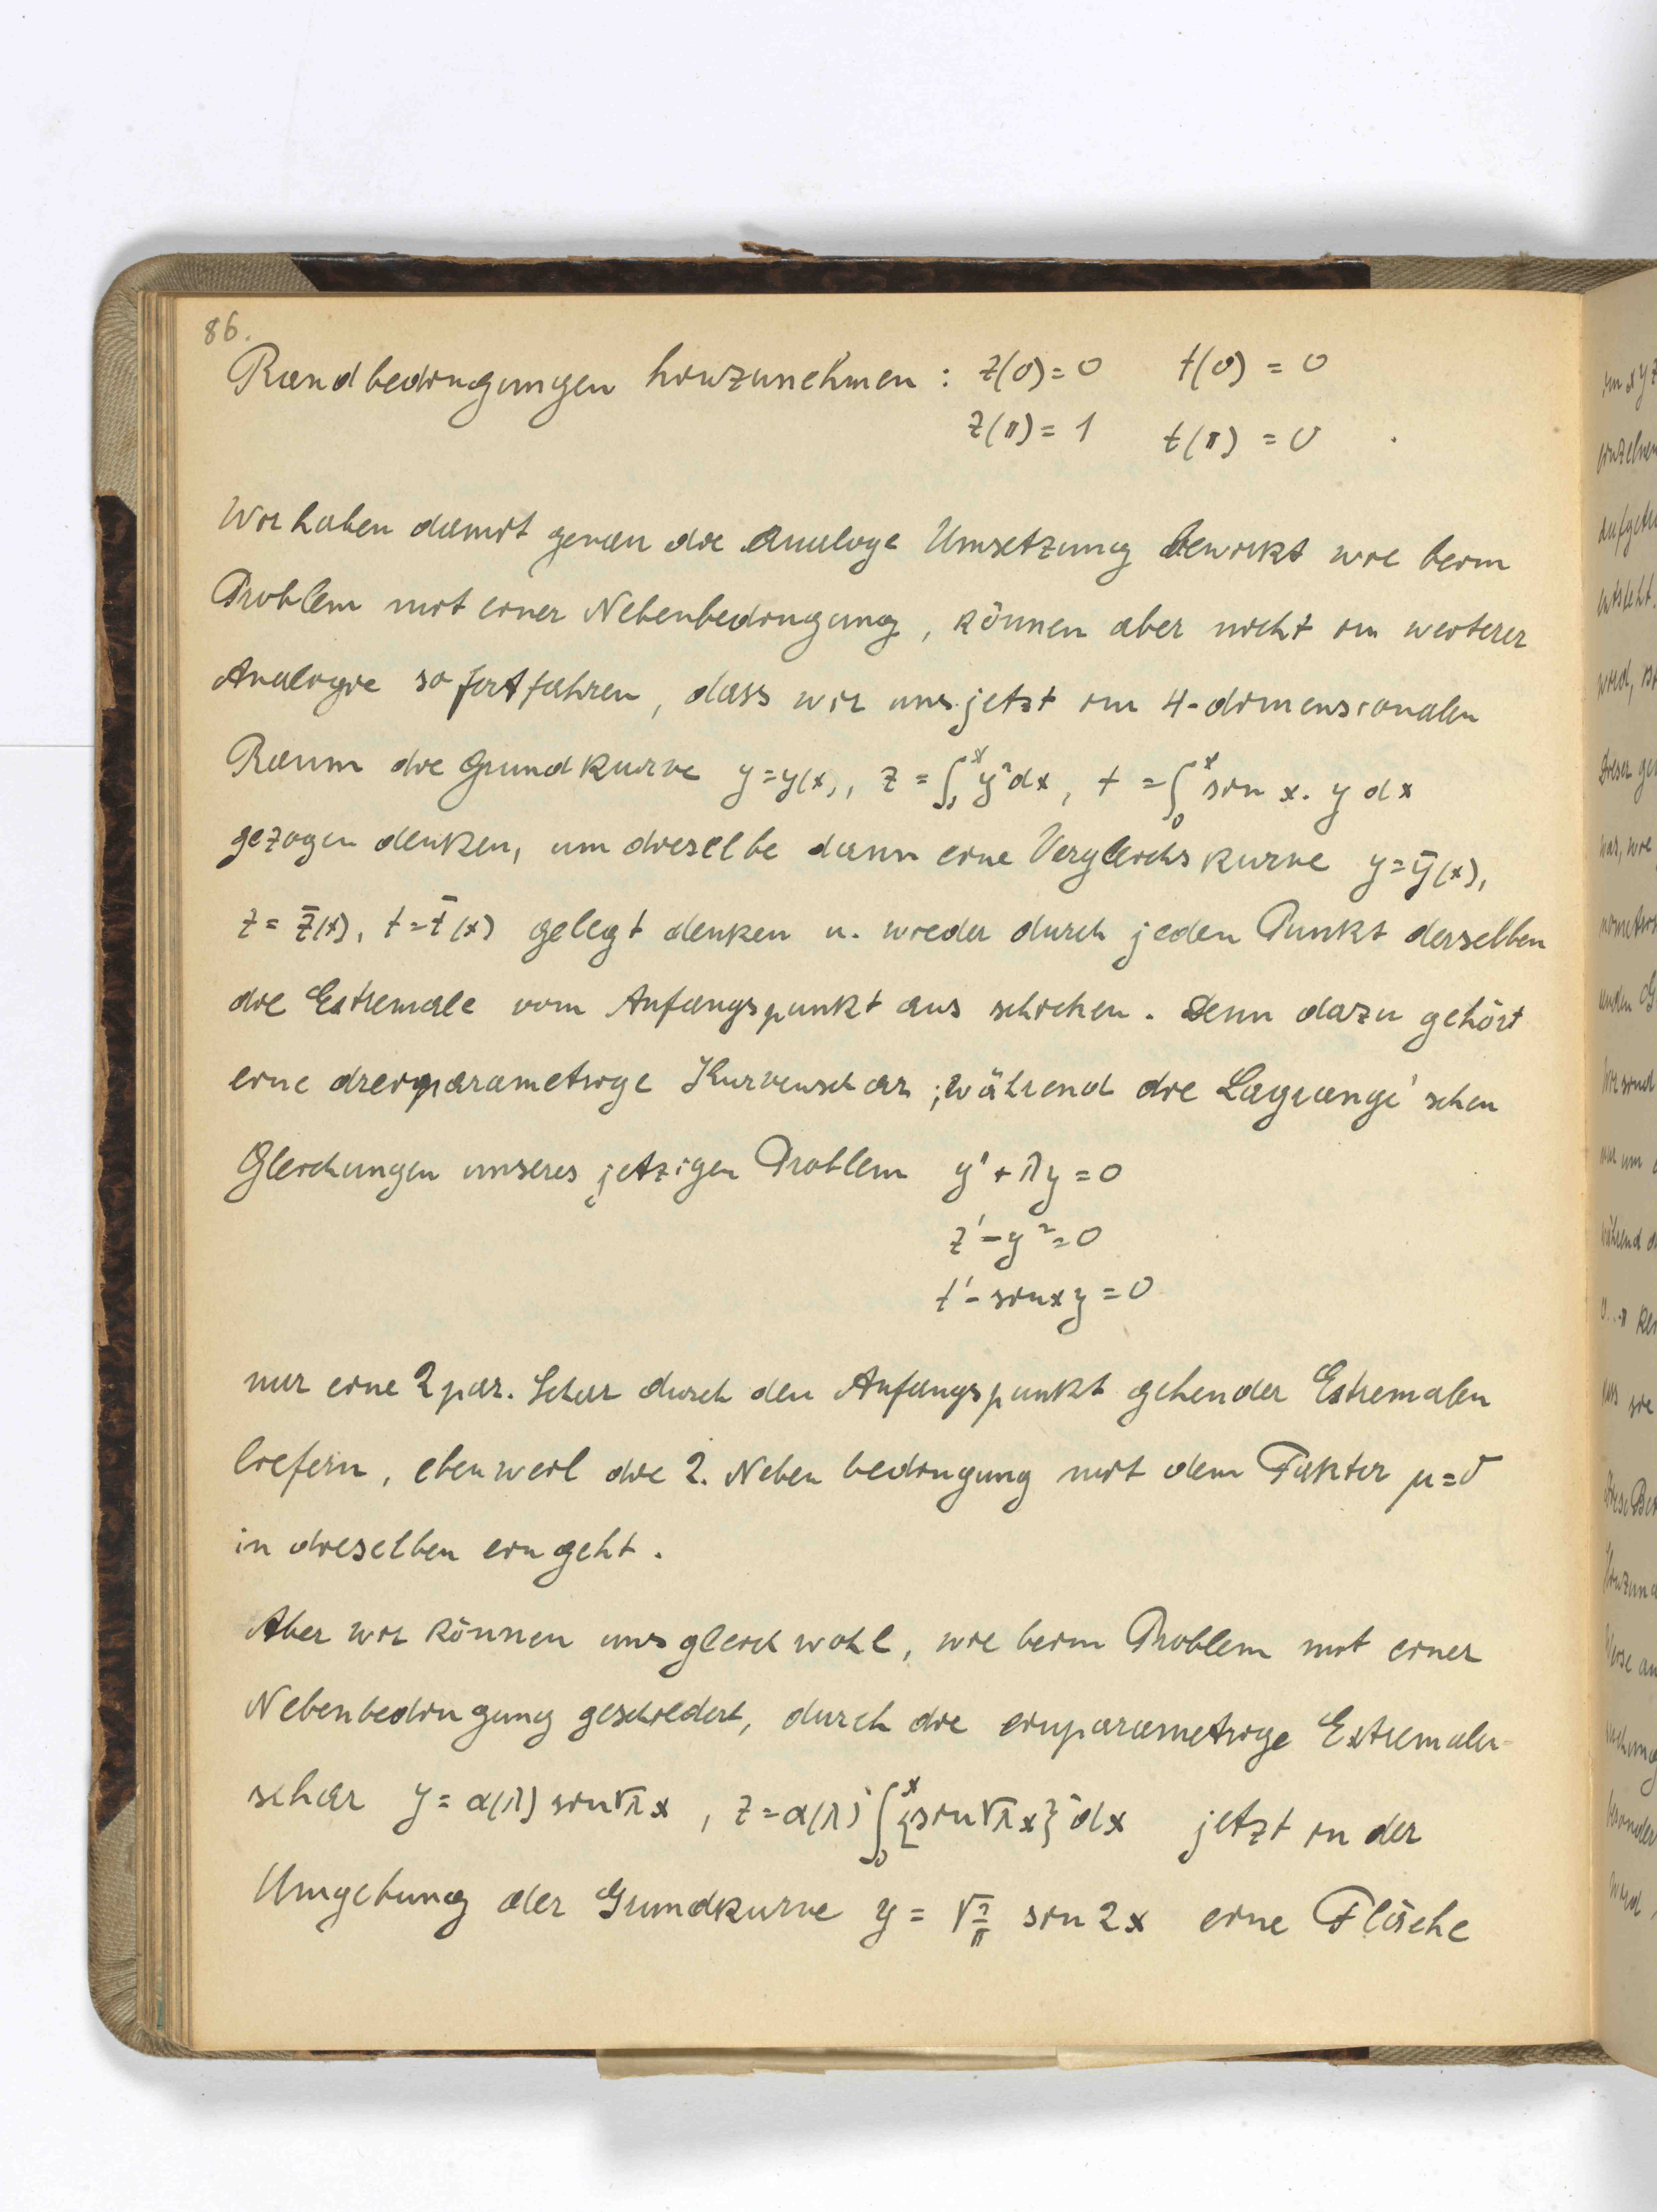 86.
Randbedingungen hinzunehmen : z(0)=0 t(0) = 0
z(π)= 1 t(π) = 0 .
Wir haben damit genau die analoge Umsetzung bewirkt wie beim
Problem mit einer Nebenbedingung, können aber nicht in weiterer
Analogie so fortfahren, dass wir uns jetzt im 4-dimensionalen
Raum die Grundkurve y=y(x), z = ∫₀ˣ y²dx, t = ∫₀ˣ sin x. y dx
gezogen denken, um dieselbe dann eine Vergleichskurve y=ȳ(x),
z= z̄(x), t=t̄(x) gelegt denken u. wieder durch jeden Punkt derselben
die Extremale vom Anfangspunkt aus schicken. Denn dazu gehört
eine dreiparametrige Kurvenschar; während die Lagrange'schen
Gleichungen unseres jetzigen Problem y'' + λy = 0
z' - y² = 0
t' - sin x y = 0
nur eine 2 par. Schar durch den Anfangspunkt gehender Extremalen
liefern, eben weil die 2. Nebenbedingung mit dem Faktor μ=0
in dieselben eingeht.
Aber wir können uns gleichwohl, wie beim Problem mit einer
Nebenbedingung geschildert, durch die einparametrige Extremalen-
schar y = α(λ) sin√λ x , z = α(λ)² ∫₀ˣ {sin√λ x}² dx jetzt in der
Umgebung der Grundkurve y = √2/π sin 2x eine Fläche